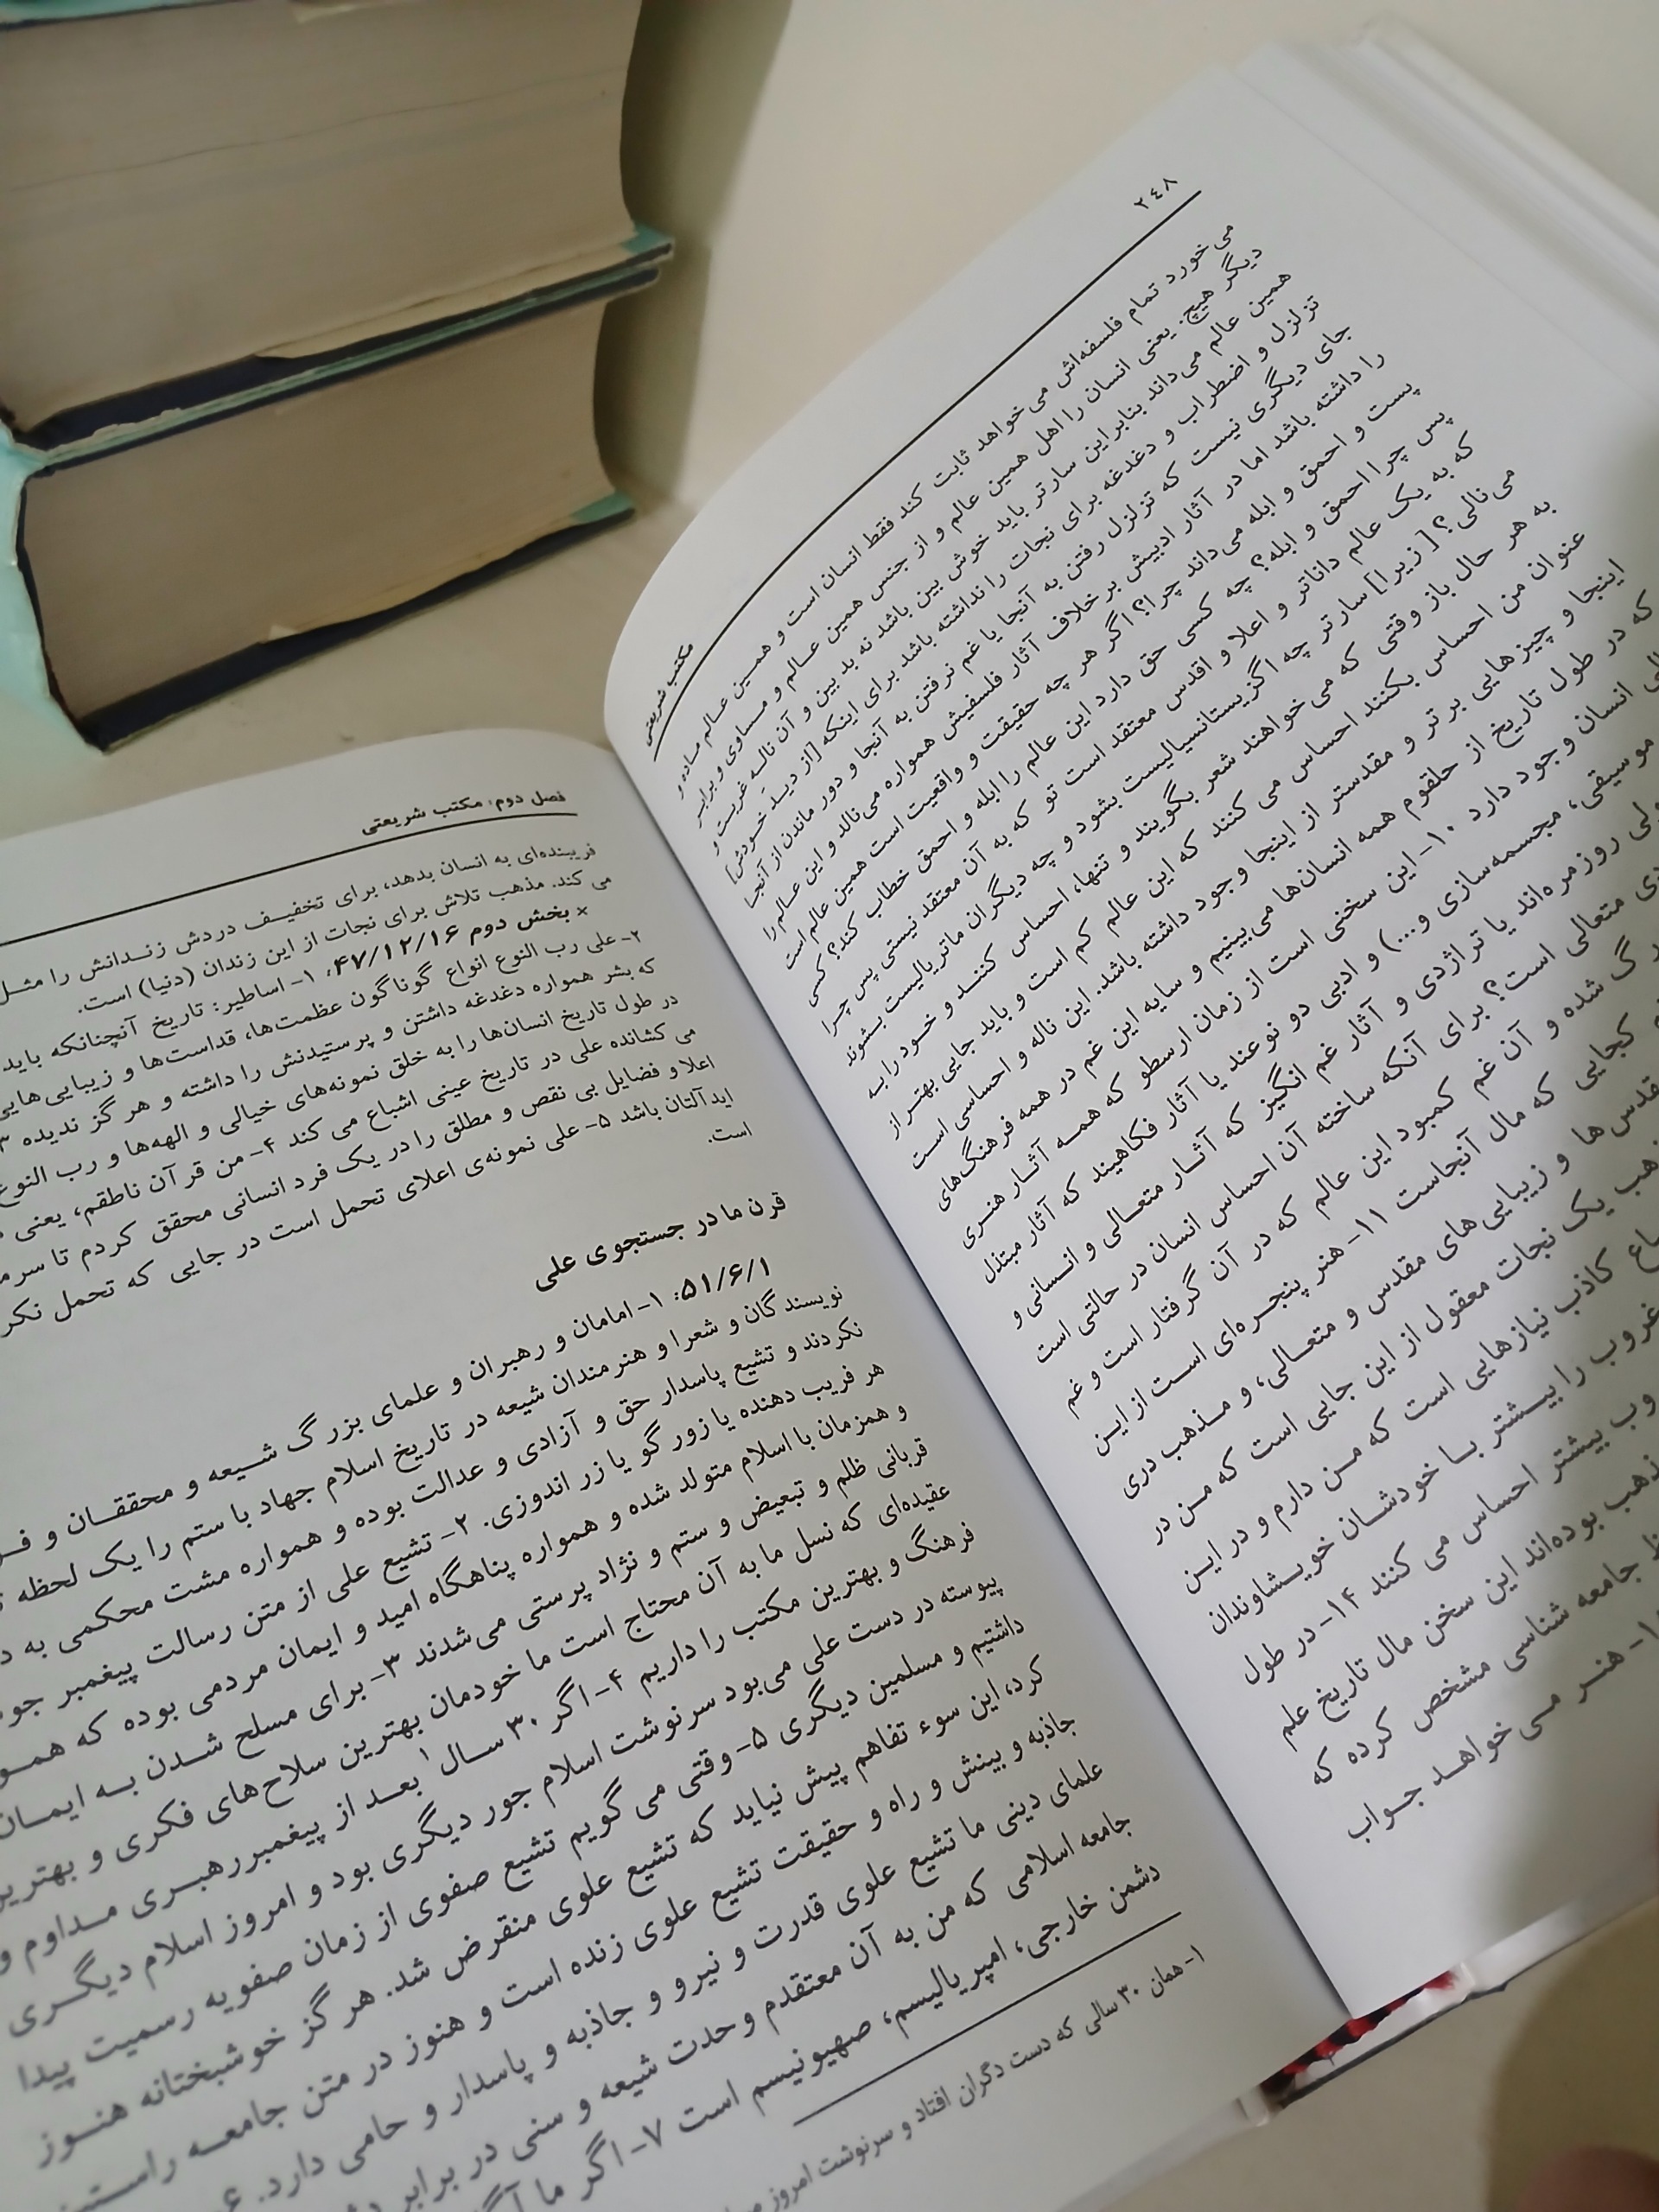 ۲٤۸
مکتب شریعتی
می‌خورد تمام فلسفه‌اش می‌خواهد ثابت کند فقط انسان است و همین عالم ماده و
دیگر هیچ. یعنی انسان را اهل همین عالم و از جنس همین عالم و مساوی و برابر
همین عالم می‌داند بنابراین سارتر باید خوش بین باشد نه بد بین و آن ناله غربت و
تزلزل و اضطراب و دغدغه برای نجات را نداشته باشد برای اینکه [از دید خودش]
جای دیگری نیست که تزلزل رفتن به آنجا یا غم نرفتن به آنجا و دور ماندن از آنجا
را داشته باشد اما در آثار ادبیش برخلاف آثار فلسفیش همواره می‌نالد و این عالم را
پست و احمق و ابله می‌داند چرا؟ اگر هر چه حقیقت و واقعیت است همین عالم است
پس چرا احمق و ابله؟ چه کسی حق دارد این عالم را ابله و احمق خطاب کند؟ کسی
که به یک عالم داناتر و اعلا و اقدس معتقد است تو که به آن معتقد نیستی پس چرا
می‌نالی؟ [زیرا] سارتر چه اگزیستانسیالیست بشود و چه دیگران ماتریالیست بشوند
به هر حال باز وقتی که می‌خواهند شعر بگویند و تنها، احساس کنند و خود را به
عنوان من احساس بکنند احساس می کنند که این عالم کم است و باید جایی بهتر از
اینجا و چیزهایی برتر و مقدستر از اینجا وجود داشته باشد. این ناله و احساسی است
که در طول تاریخ از حلقوم همه انسان‌ها می‌بینیم و سایه این غم در همه فرهنگ‌های
انسان وجود دارد ۱۰- این سخنی است از زمان ارسطو که همه آثار هنری
موسیقی، مجسمه‌سازی و...) و ادبی دو نوعند یا آثار فکاهیند که آثار مبتذل
روزمره‌اند یا تراژدی و آثار غم انگیز که آثار متعالی و انسانی و
متعالی است؟ برای آنکه ساخته آن احساس انسان در حالتی است
شده و آن غم کمبود این عالم که در آن گرفتار است و غم
کجایی که مال آنجاست ۱۱- هنر پنجره‌ای است از این
و زیبایی‌های مقدس و متعالی، و مذهب دری
یک نجات معقول از این جایی است که من در
کاذب نیازهایی است که من دارم و در این
غروب را بیشتر با خودشان خویشاوندان
بیشتر احساس می کنند ۱۴- در طول
بوده‌اند این سخن مال تاریخ علم
جامعه شناسی مشخص کرده که
هنر می‌خواهد جواب
فصل دوم: مکتب شریعتی
فریبنده‌ای به انسان بدهد، برای تخفیف دردش زندانش را مثل
می کند. مذهب تلاش برای نجات از این زندان (دنیا) است.
× بخش دوم ۴۷/۱۲/۱۶: ۱- اساطیر: تاریخ آنچنانکه باید
۲- علی رب النوع انواع گوناگون عظمت‌ها، قداست‌ها و زیبایی‌هایی
که بشر همواره دغدغه داشتن و پرستیدنش را داشته و هرگز ندیده ۳
در طول تاریخ انسان‌ها را به خلق نمونه‌های خیالی و الهه‌ها و رب النوع
می کشانده علی در تاریخ عینی اشباع می کند ۴- من قرآن ناطقم، یعنی
اعلا و فضایل بی نقص و مطلق را در یک فرد انسانی محقق کردم تا
ایدآلتان باشد ۵- علی نمونه‌ی اعلای تحمل است در جایی که تحمل
است.
قرن ما در جستجوی علی
۵۱/۶/۱: ۱- امامان و رهبران و علمای بزرگ شیعه و محققان و
نویسندگان و شعرا و هنرمندان شیعه در تاریخ اسلام جهاد با ستم را یک لحظه
نکردند و تشیع پاسدار حق و آزادی و عدالت بوده و همواره مشت محکمی به
هر فریب دهنده یا زورگو یا زر اندوزی. ۲- تشیع علی از متن رسالت پیغمبر
و همزمان با اسلام متولد شده و همواره پناهگاه امید و ایمان مردمی بوده که
قربانی ظلم و تبعیض و ستم و نژاد پرستی می‌شدند ۳- برای مسلح شدن به ایمان
عقیده‌ای که نسل ما به آن محتاج است ما خودمان بهترین سلاح‌های فکری و
فرهنگ و بهترین مکتب را داریم ۴- اگر ۳۰ سال ۱ بعد از پیغمبر رهبری مداوم و
پیوسته در دست علی می‌بود سرنوشت اسلام جور دیگری بود و امروز اسلام دیگری
داشتیم و مسلمین دیگری ۵- وقتی می گویم تشیع صفوی از زمان صفویه رسمیت پیدا
کرد، این سوء تفاهم پیش نیاید که تشیع علوی منقرض شد. هرگز خوشبختانه هنوز
جاذبه و بینش و راه و حقیقت تشیع علوی زنده است و هنوز در متن جامعه
علمای دینی ما تشیع علوی قدرت و نیرو و جاذبه و پاسدار و حامی دارد.
جامعه اسلامی که من به آن معتقدم وحدت شیعه و سنی در برابر
دشمن خارجی، امپریالیسم، صهیونیسم است ۷- اگر ما
۱- همان ۳۰ سالی که دست دگران افتاد و سرنوشت امروز